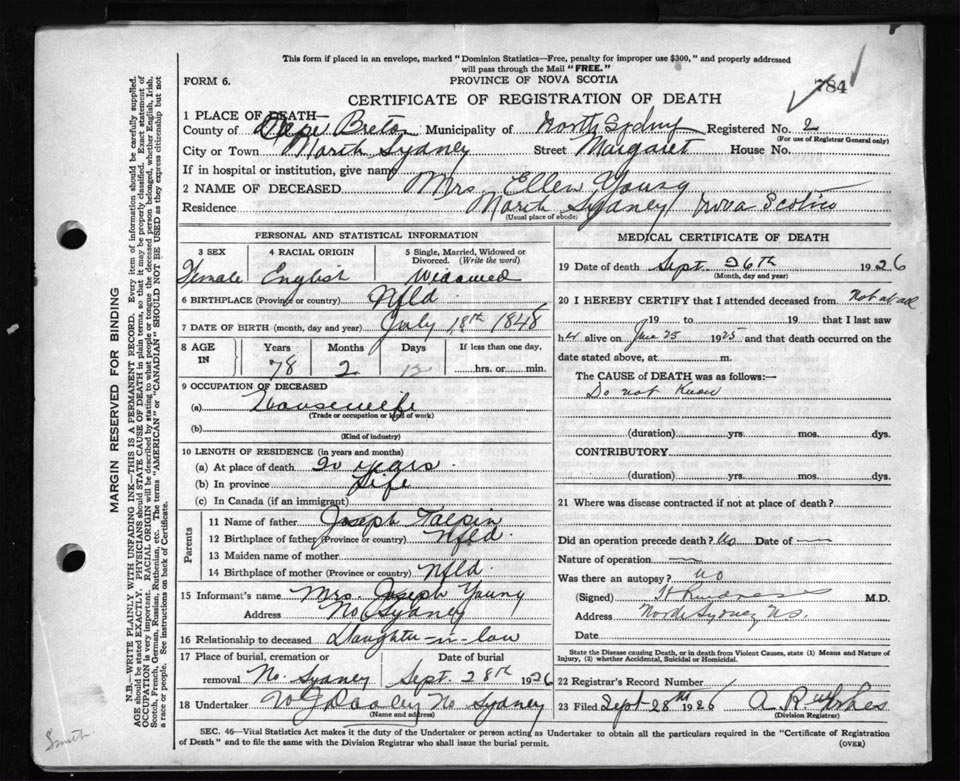 This form if placed in an envelope, marked "Dominion Statistics—Free, penalty for improper use $300," and properly addressed
will pass through the Mail "FREE."
FORM 6. PROVINCE OF NOVA SCOTIA
784
CERTIFICATE OF REGISTRATION OF DEATH
1 PLACE OF DEATH—
County of Cape Breton Municipality of North Sydney Registered No. 2
(For use of Registrar General only)
City or Town North Sydney Street Margaret House No.
If in hospital or institution, give name
2 NAME OF DECEASED Mrs. Ellen Young
Residence North Sydney Nova Scotia
(Usual place of abode)
PERSONAL AND STATISTICAL INFORMATION
3 SEX 4 RACIAL ORIGIN 5 Single, Married, Widowed or Divorced. (Write the word)
Female English Widowed
6 BIRTHPLACE (Province or country) Nfld.
7 DATE OF BIRTH (month, day and year) July 18th 1848
8 AGE IN Years Months Days If less than one day,
78 2 hrs. or min.
9 OCCUPATION OF DECEASED
(a) Housewife
(Trade or occupation or kind of work)
(b)
(Kind of industry)
10 LENGTH OF RESIDENCE (in years and months)
(a) At place of death 20 years.
(b) In province Life
(c) In Canada (if an immigrant)
Parents
11 Name of father Joseph
12 Birthplace of father (Province or country) Nfld.
13 Maiden name of mother
14 Birthplace of mother (Province or country) Nfld.
15 Informant's name Mrs. Joseph Young
Address No. Sydney
16 Relationship to deceased Daughter-in-law
17 Place of burial, cremation or Date of burial
removal No. Sydney Sept. 28th 1926
18 Undertaker Dooley No Sydney
(Name and address)
MEDICAL CERTIFICATE OF DEATH
19 Date of death Sept. 26th 1926
(Month, day and year)
20 I HEREBY CERTIFY that I attended deceased from Not at all
19 to 19 that I last saw
her alive on 25 1925 and that death occurred on the
date stated above, at m.
The CAUSE of DEATH was as follows:—
Do not know
(duration) yrs. mos. dys.
CONTRIBUTORY
(duration) yrs. mos. dys.
21 Where was disease contracted if not at place of death?
Did an operation precede death? No Date of —
Nature of operation —
Was there an autopsy? no
(Signed) M.D.
Address North Sydney, N.S.
Date
State the Disease causing Death, or in death from Violent Causes, state (1) Means and Nature of
Injury, (2) whether Accidental, Suicidal or Homicidal.
22 Registrar's Record Number
23 Filed Sept 28th 1926 A. R. Forbes
(Division Registrar)
SEC. 46—Vital Statistics Act makes it the duty of the Undertaker or person acting as Undertaker to obtain all the particulars required in the "Certificate of Registration
of Death" and to file the same with the Division Registrar who shall issue the burial permit. (OVER)
MARGIN RESERVED FOR BINDING
N.B.—WRITE PLAINLY WITH UNFADING INK—THIS IS A PERMANENT RECORD. Every item of information should be carefully supplied.
AGE should be stated EXACTLY. PHYSICIANS should STATE CAUSE OF DEATH in plain terms, so that it may be properly classified. Exact statement of
OCCUPATION is very important. RACIAL ORIGIN will be described by stating to what people or tongue the deceased person belonged, whether English, Irish,
Scotch, French, German, Russian, Ruthenian, etc. The terms "AMERICAN" or "CANADIAN" SHOULD NOT BE USED as they express citizenship but not
a race or people. See instructions on back of Certificate.
Smith.